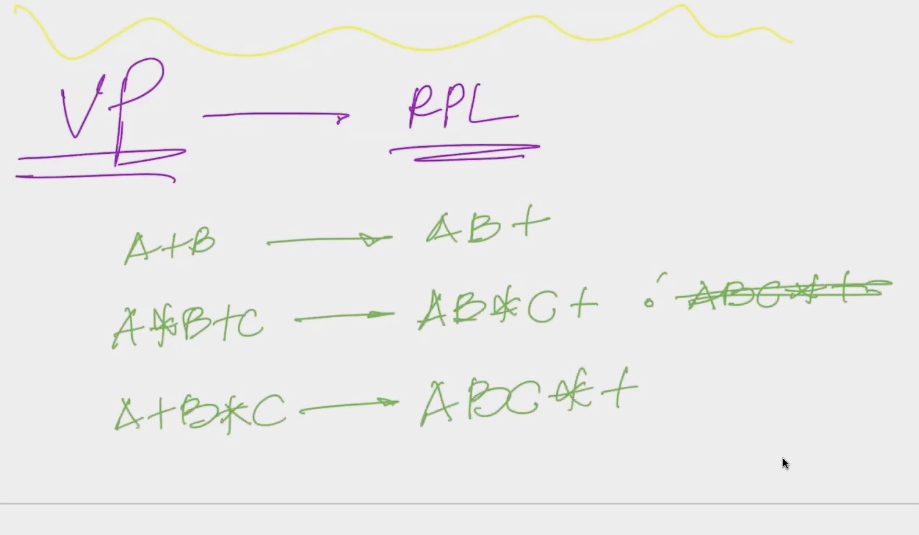 VP → RPL
A+B → AB+
A*B+C → AB*C+ ABC*+
A+B*C → ABC*+